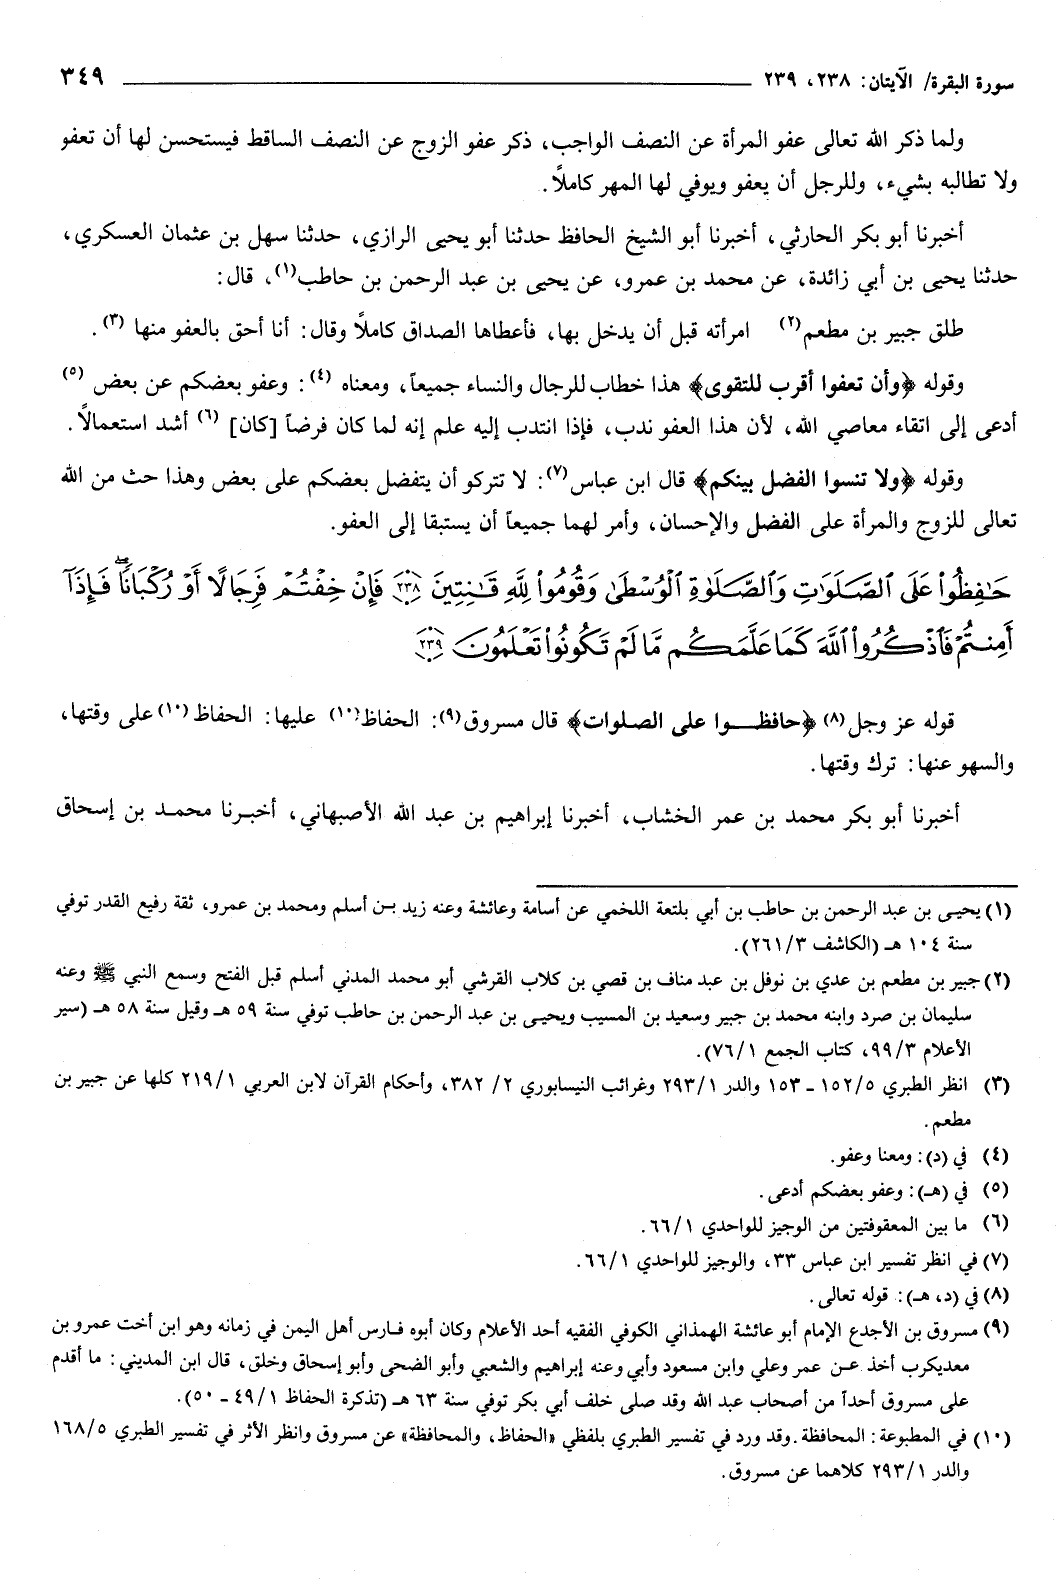 سورة البقرة/ الآيتان: ٢٣٨، ٢٣٩ ٣٤٩
ولما ذكر الله تعالى عفو المرأة عن النصف الواجب، ذكر عفو الزوج عن النصف الساقط فيستحسن لها أن تعفو
ولا تطالبه بشيء، وللرجل أن يعفو ويوفي لها المهر كاملاً.
أخبرنا أبو بكر الحارثي، أخبرنا أبو الشيخ الحافظ حدثنا أبو يحيى الرازي، حدثنا سهل بن عثمان العسكري،
حدثنا يحيى بن أبي زائدة، عن محمد بن عمرو، عن يحيى بن عبد الرحمن بن حاطب(١)، قال:
طلق جبير بن مطعم(٢) امرأته قبل أن يدخل بها، فأعطاها الصداق كاملاً وقال: أنا أحق بالعفو منها (٣).
وقوله ﴿وأن تعفوا أقرب للتقوى﴾ هذا خطاب للرجال والنساء جميعاً، ومعناه (٤): وعفو بعضكم عن بعض (٥)
أدعى إلى اتقاء معاصي الله، لأن هذا العفو ندب، فإذا انتدب إليه علم إنه لما كان فرضاً [كان] (٦) أشد استعمالاً.
وقوله ﴿ولا تنسوا الفضل بينكم﴾ قال ابن عباس(٧): لا تتركو أن يتفضل بعضكم على بعض وهذا حث من الله
تعالى للزوج والمرأة على الفضل والإحسان، وأمر لهما جميعاً أن يستبقا إلى العفو.
حَٰفِظُواْ عَلَى ٱلصَّلَوَٰتِ وَٱلصَّلَوٰةِ ٱلۡوُسۡطَىٰ وَقُومُواْ لِلَّهِ قَٰنِتِينَ ٢٣٨ فَإِنۡ خِفۡتُمۡ فَرِجَالًا أَوۡ رُكۡبَانٗاۖ فَإِذَآ
أَمِنتُمۡ فَٱذۡكُرُواْ ٱللَّهَ كَمَا عَلَّمَكُم مَّا لَمۡ تَكُونُواْ تَعۡلَمُونَ ٢٣٩
قوله عز وجل(٨) ﴿حافظــوا على الصلوات﴾ قال مسروق(٩): الحفاظ(١٠) عليها: الحفاظ(١٠) على وقتها،
والسهو عنها: ترك وقتها.
أخبرنا أبو بكر محمد بن عمر الخشاب، أخبرنا إبراهيم بن عبد الله الأصبهاني، أخبـرنا محمـد بن إسحاق
(١) يحيـى بن عبد الرحمن بن حاطب بن أبي بلتعة اللخمي عن أسامة وعائشة وعنه زيد بـن أسلم ومحمد بن عمرو، ثقة رفيع القدر توفي
سنة ١٠٤ هـ (الكاشف ٢٦١/٣).
(٢) جبير بن مطعم بن عدي بن نوفل بن عبد مناف بن قصي بن كلاب القرشي أبو محمد المدني أسلم قبل الفتح وسمع النبي ﷺ وعنه
سليمان بن صرد وابنه محمد بن جبير وسعيد بن المسيب ويحيـى بن عبد الرحمن بن حاطب توفي سنة ٥٩ هـ وقيل سنة ٥٨ هـ (سير
الأعلام ٩٩/٣، كتاب الجمع ٧٦/١).
(٣) انظر الطبري ١٥٢/٥ ـ ١٥٣ والدر ٢٩٣/١ وغرائب النيسابوري ٢/ ٣٨٢، وأحكام القرآن لابن العربي ٢١٩/١ كلها عن جبير بن
مطعم.
(٤) في (د): ومعنا وعفو.
(٥) في (هـ): وعفو بعضكم أدعى.
(٦) ما بين المعقوفتين من الوجيز للواحدي ٦٦/١.
(٧) في انظر تفسير ابن عباس ٣٣، والوجيز للواحدي ٦٦/١.
(٨) في (د، هـ): قوله تعالى.
(٩) مسروق بن الأجدع الإمام أبو عائشة الهمذاني الكوفي الفقيه أحد الأعلام وكان أبوه فـارس أهل اليمن في زمانه وهو ابن أخت عمرو بن
معديكرب أخذ عـن عمر وعلي وابن مسعود وأبي وعنه إبراهيم والشعبي وأبو الضحى وأبو إسحاق وخلق، قال ابن المديني: ما أقدم
على مسروق أحداً من أصحاب عبد الله وقد صلى خلف أبي بكر توفي سنة ٦٣ هـ (تذكرة الحفاظ ٤٩/١ ـ ٥٠).
(١٠) في المطبوعة: المحافظة. وقد ورد في تفسير الطبري بلفظي «الحفاظ، والمحافظة» عن مسروق وانظر الأثر في تفسير الطبري ١٦٨/٥
والدر ٢٩٣/١ كلاهما عن مسروق.